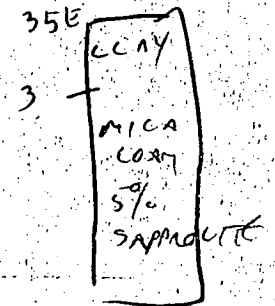 35E
CLAY
3
MICA
LOAM
5%
SAPPROLITE